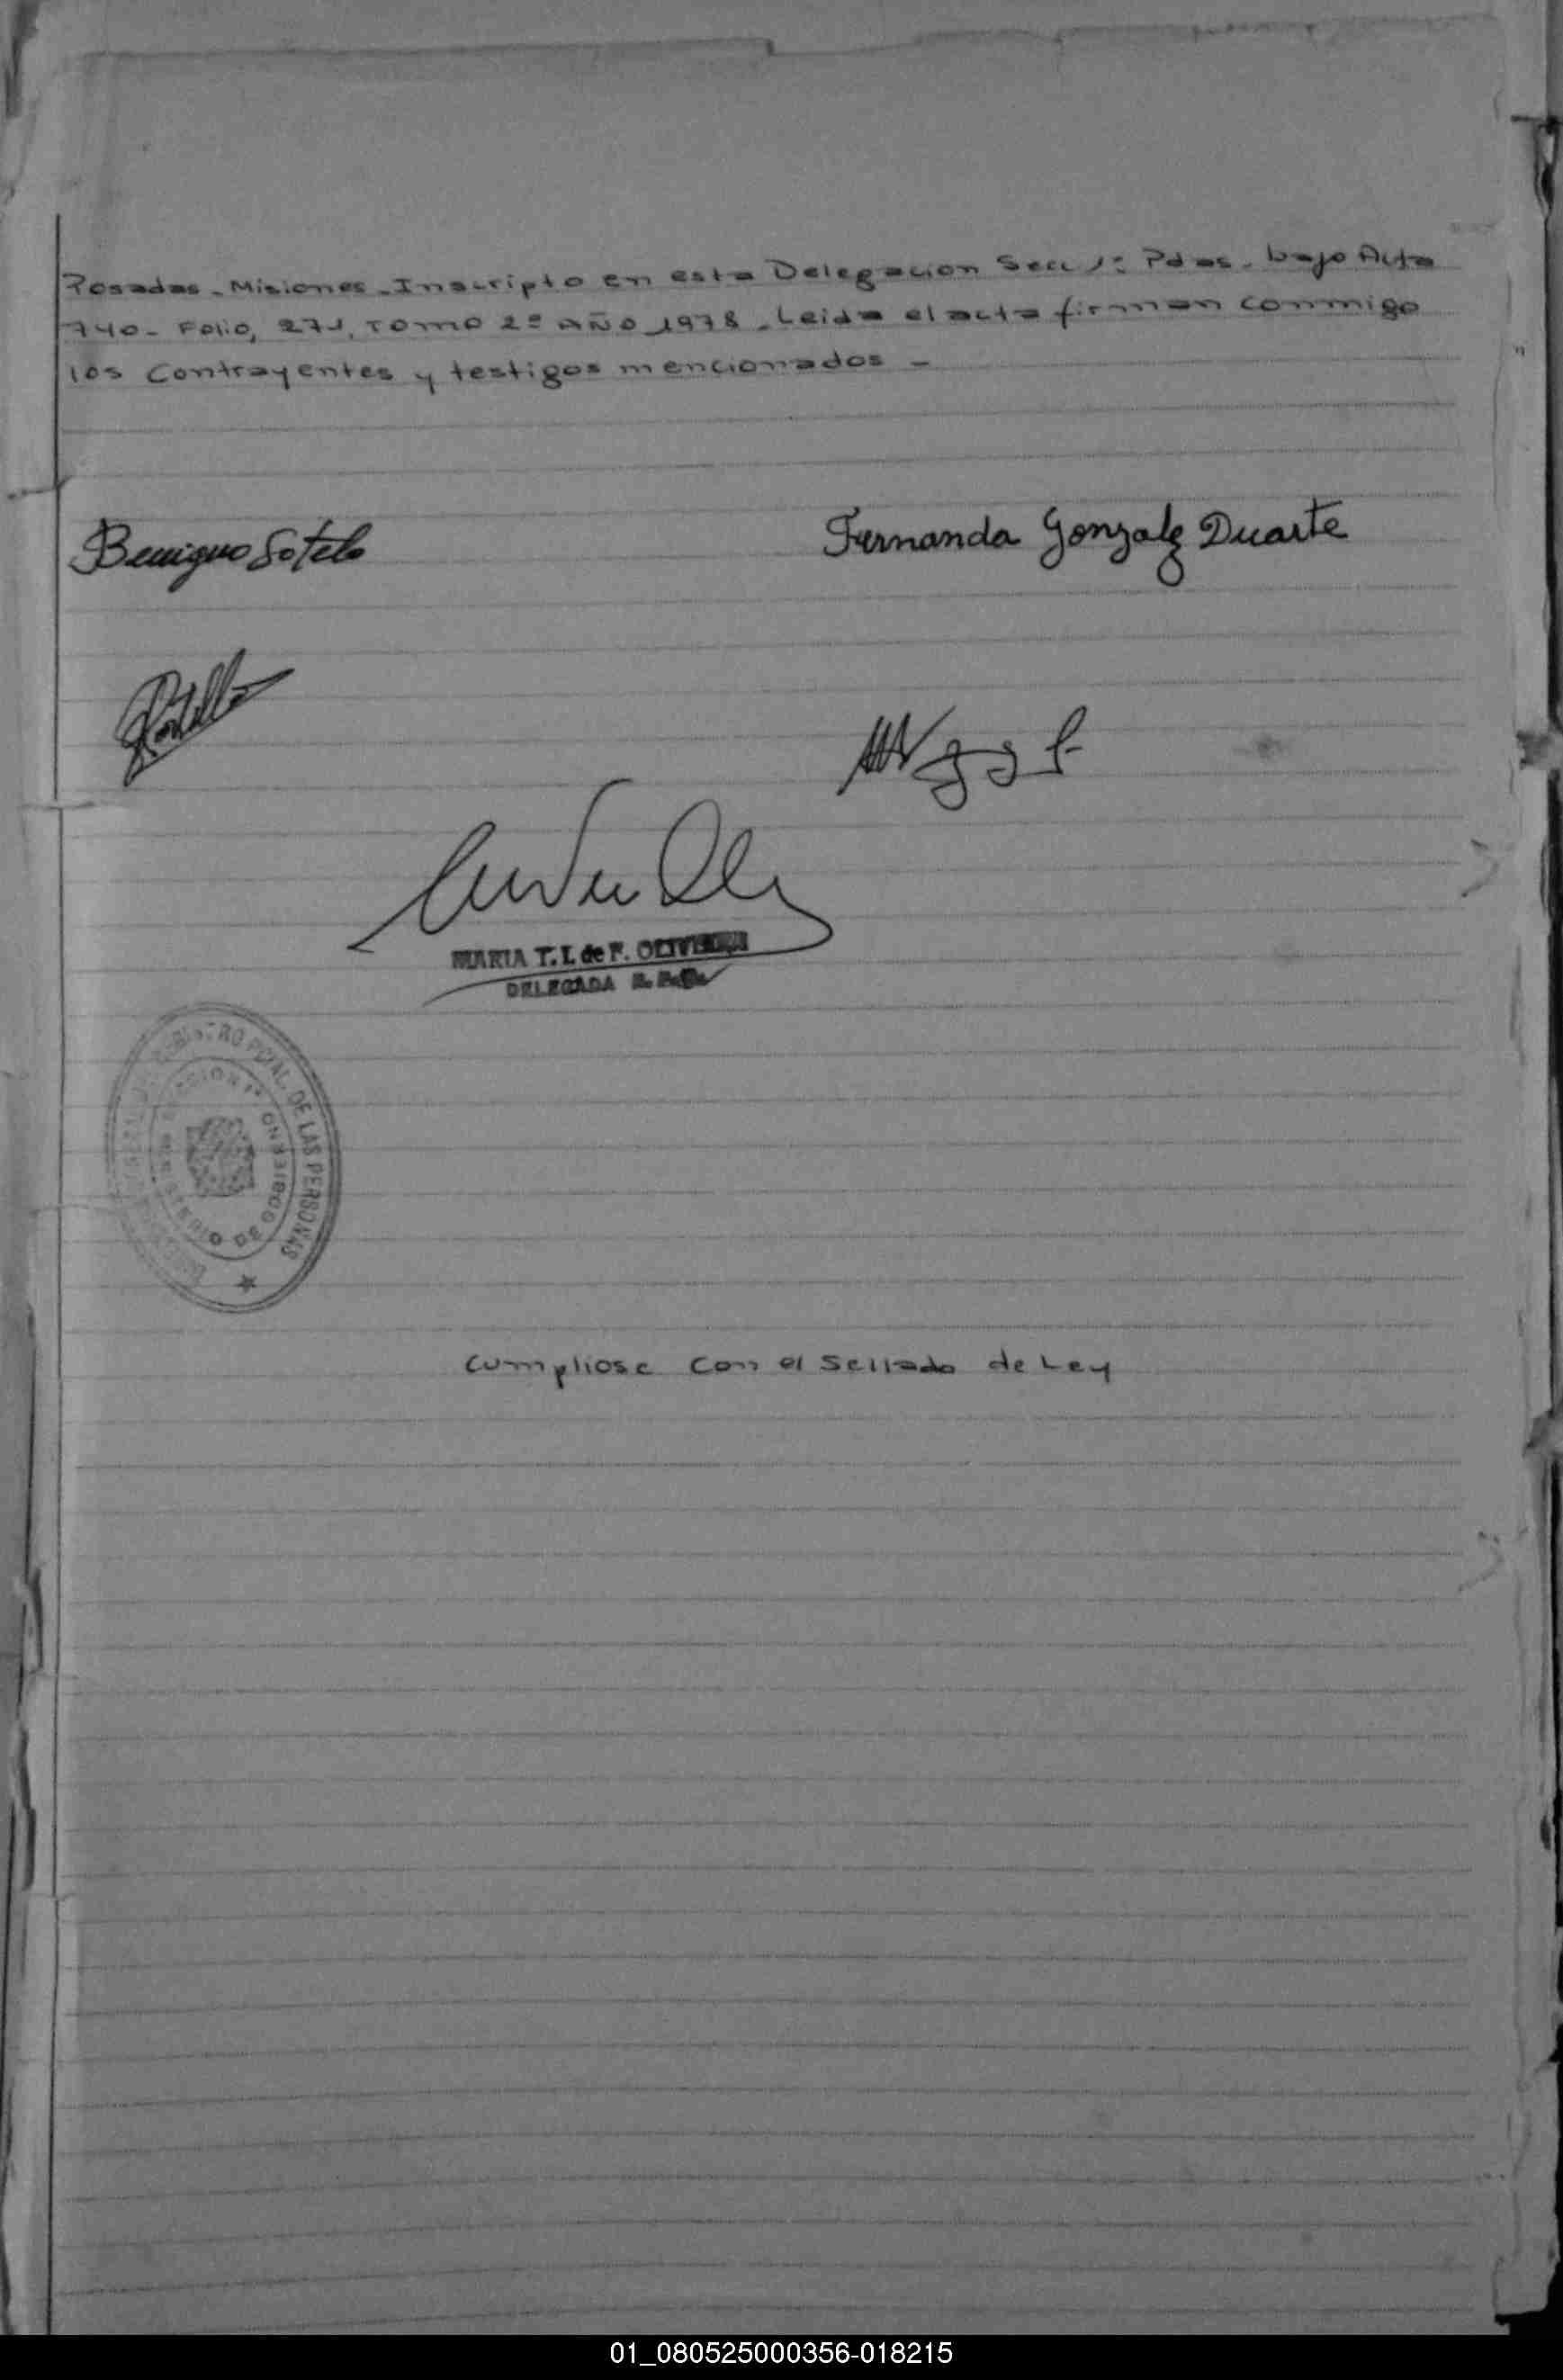 Posadas - Misiones - Inscripto en esta Delegacion Secc 1º Pdas. bajo Acta
740 - Folio, 271, TOMO 2º AÑO 1978 - Leida el acta firman conmigo
los Contrayentes y testigos mencionados -
Benigno Sotelo
Fernanda Gonzalez Duarte
MARIA T. I. de F. OLIVEIRA
DELEGADA
REGISTRO PCIAL. DE LAS PERSONAS
SECCION 1ª
GOBIERNO DE
Cumpliose con el Sellado de Ley
01_080525000356-018215